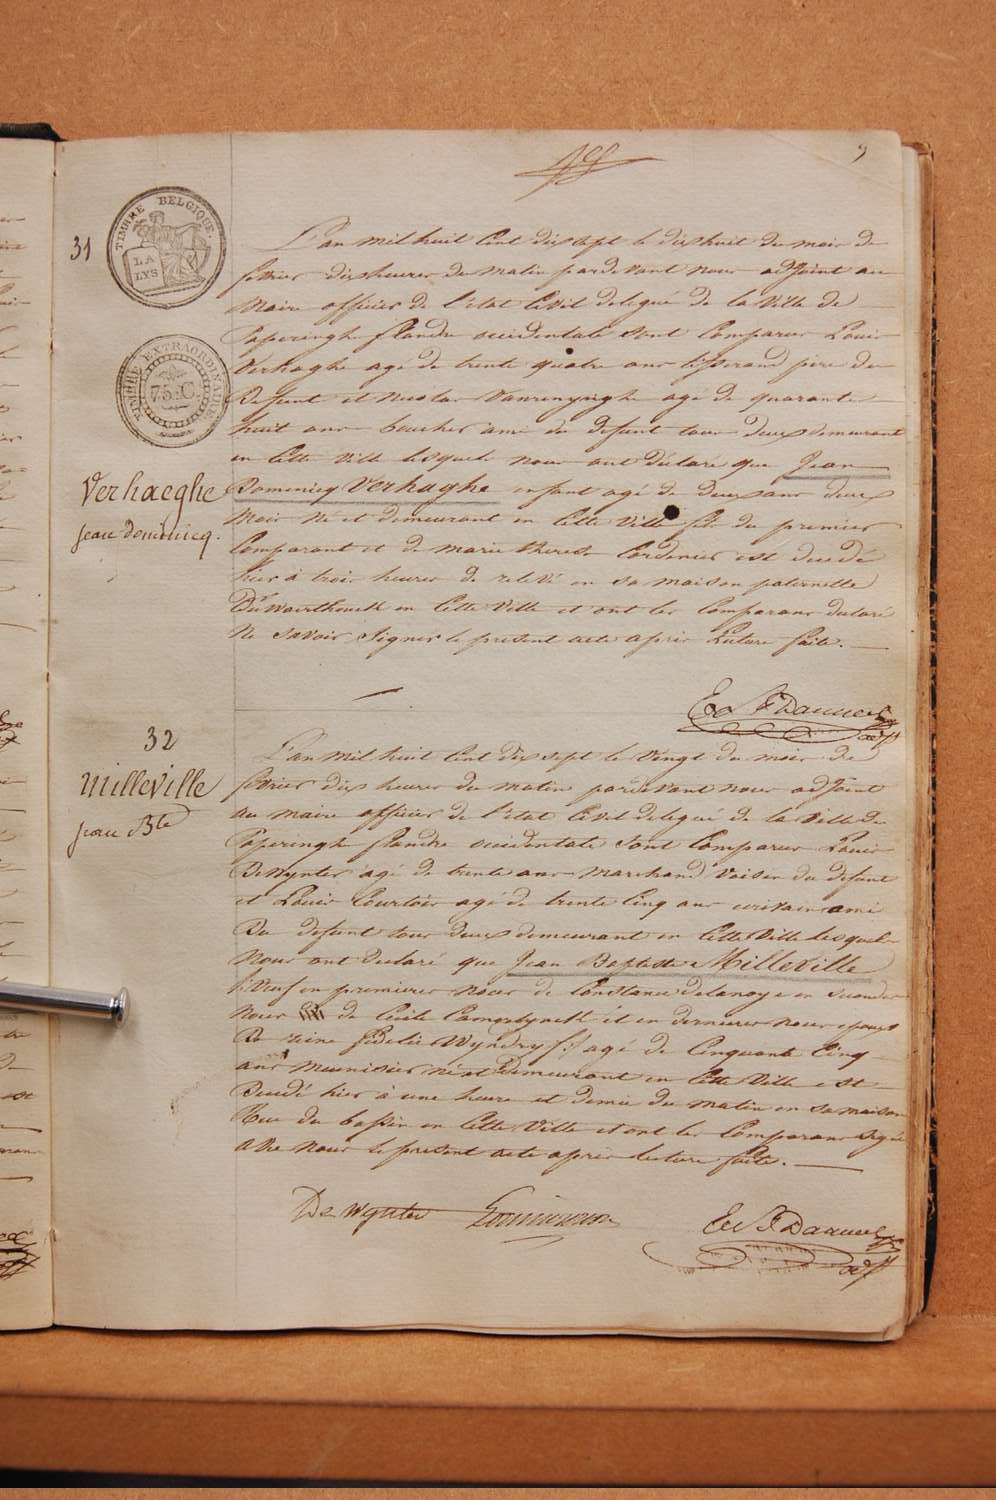 9
31
TIMBRE BELGIQUE
LA
LYS
TIMBRE EXTRAORDINAIRE
75 C.
L'an mil huit Cent dix sept le dix huit du mois de
fevrier dix heures du Matin pardevant nous adjoint au
Maire officier de l'etat Civil delegué de la Ville de
Poperinghe flandre occidentale sont Comparus Louis
Verhaghe agé de trente quatre ans tisserand pere du
Defunt et Nicolas Vanrenynghe agé de quarante
huit ans boucher ami du defunt tous deux demeurant
en Cette Ville lesquels nous ont Déclaré que Jean
Verhaeghe
jean dominicq.
Domenicq Verhaghe enfant agé de deux ans deux
Mois né et demeurant en Cette Ville fils du premier
Comparant et de marie therese Cordenier est decedé
hier à trois heures de relevé en sa maison paternelle
en Cette Ville et ont les Comparans declaré
Ne Savoir Signer le present acte apres Lecture faite.
32
Milleville
jean Bte
L'an mil huit Cent dix sept le vingt du mois de
fevrier dix heures du matin pardevant nous adjoint
au maire officier de l'etat Civil delegué de la Ville de
Poperinghe flandre occidentale Sont Comparus Louis
DeWynter agé de trente ans marchand Voisin du defunt
et Louis Courtois agé de trente Cinq ans ecrivain ami
Du defunt tous deux demeurant en Cette Ville lesquels
Nous ont declaré que Jean Baptiste Milleville
Veuf en premieres noces de Constance Delanoye en secondes
Noces de Cecile et en dernieres Noces epoux
De reine fidelie Wyndryf agé de Cinquante Cinq
ans meunisier né et Demeurant en Cette Ville est
Decedé hier à une heure et demie du matin en sa maison
Rue du bassin en Cette Ville et ont les Comparans signé
avec Nous le present acte apres lecture faite.
De Wynter